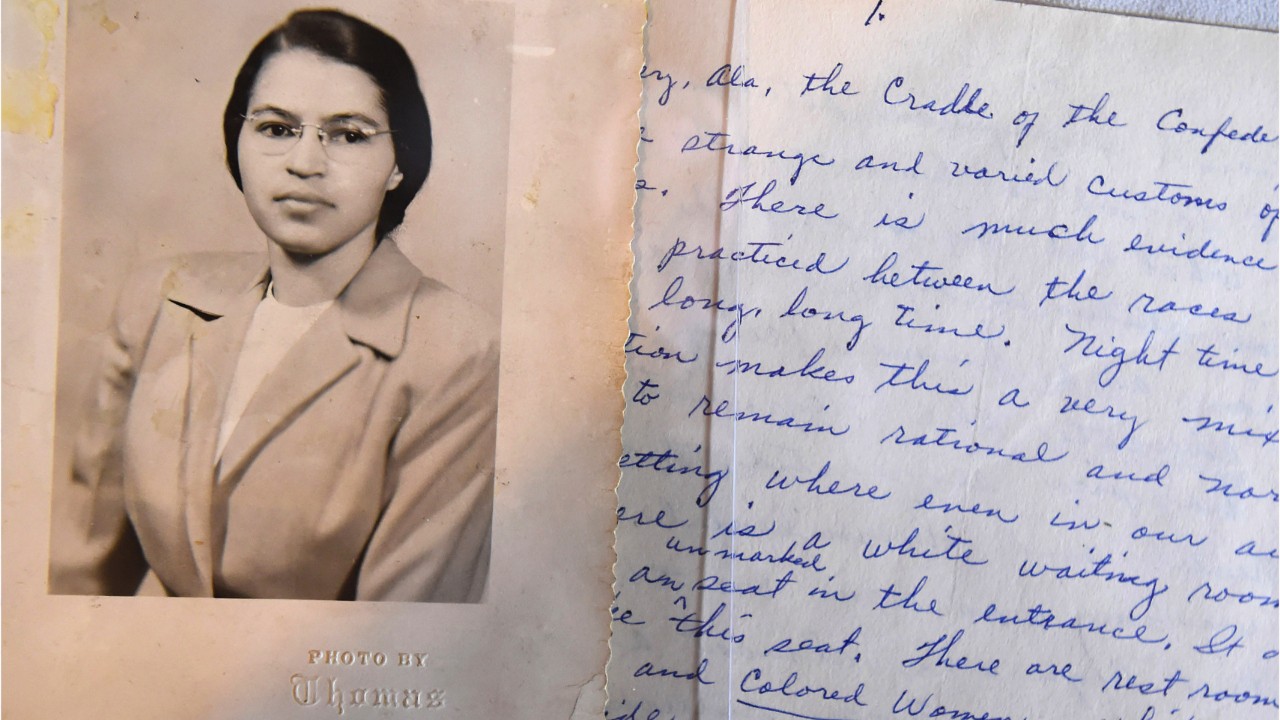 PHOTO BY
Thomas
1.
ery, Ala, the Cradle of the Confede
strange and varied customs of
s. There is much evidence
practiced between the races
long, long time. Night time
tion makes this a very mix
to remain rational and nor
etting where even in our ai
ere is a white waiting room
unmarked
an seat in the entrance. It
ke this seat. There are rest room
and Colored Women
ide